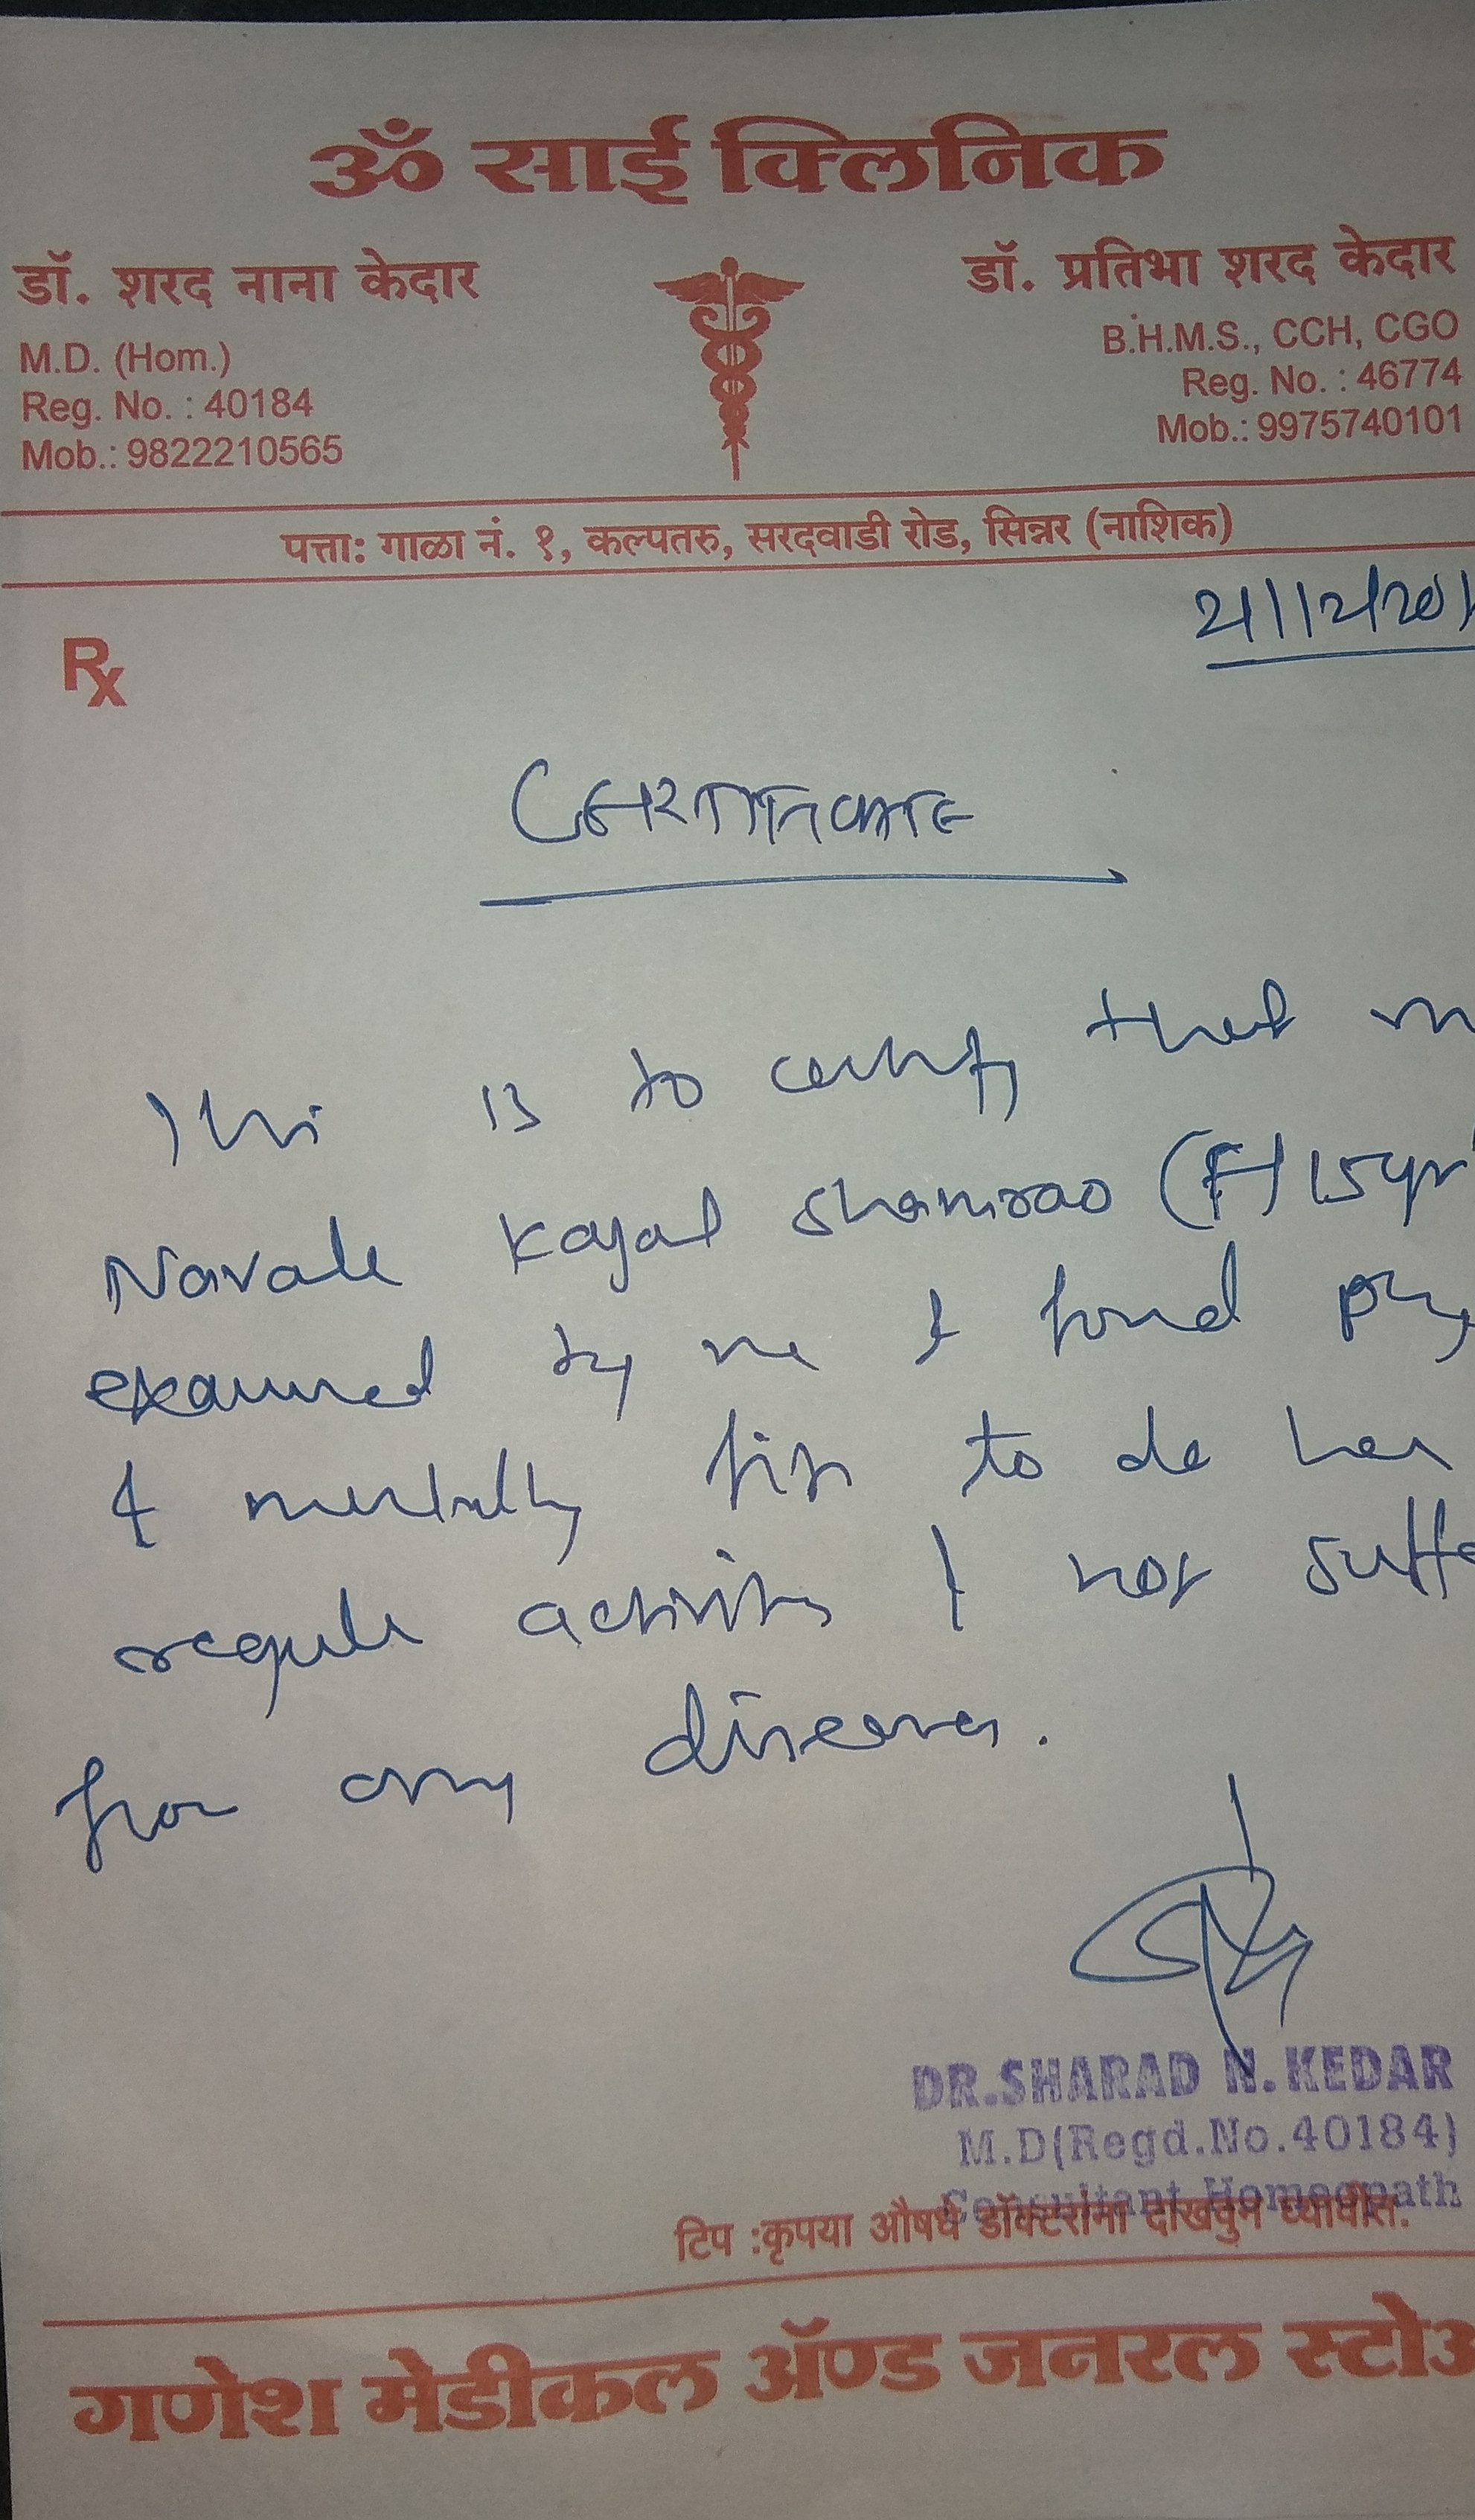 ॐ साई क्लिनिक
डॉ. शरद नाना केदार
M.D. (Hom.)
Reg. No. : 40184
Mob.: 9822210565
डॉ. प्रतिभा शरद केदार
B.H.M.S., CCH, CGO
Reg. No. : 46774
Mob.: 9975740101
पत्ता: गाळा नं. १, कल्पतरु, सरदवाडी रोड, सिन्नर (नाशिक)
21/12/201
Rx
CERTIFICATE
This is to certify that
Navale Kajal Shamrao (F) 15yr
examined by me & found
& mentally fit to do her
regular activities & not suffe
from any diseases.
DR.SHARAD N. KEDAR
M.D(Regd.No.40184)
Consultant Homeopath
टिप :कृपया औषधे डॉक्टरांना दाखवुन घ्यावीत.
गणेश मेडीकल ॲण्ड जनरल स्टोअ